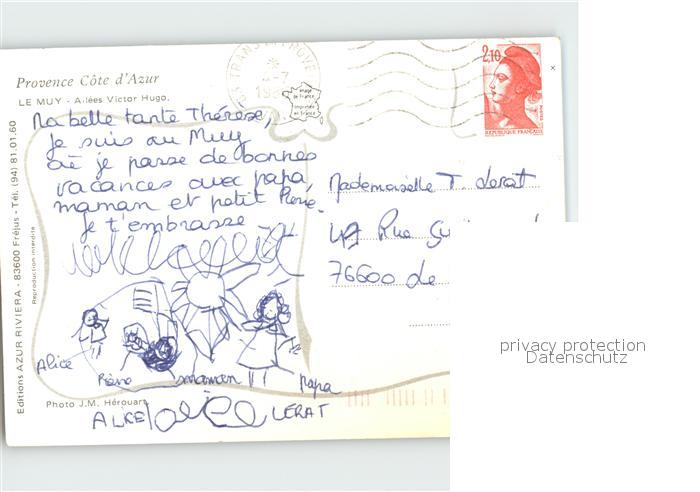 Provence Côte d'Azur
LE MUY - Allées Victor Hugo.
Ma belle tante Thérèse,
Je suis au Muy
où je passe de bonnes
vacances avec papa,
maman et petit Pierre.
Je t'embrasse
Alice
maman
papa
ALICE
LERAT
Photo J.M. Hérouart
Editions AZUR RIVIERA - 83600 Fréjus - Tél. (94) 81.01.60
Reproduction interdite
Image de France
Imprimée en France
2,10
REPUBLIQUE FRANÇAISE
Mademoiselle T. Lerat
Rue
76600 Le
privacy protection
Datenschutz